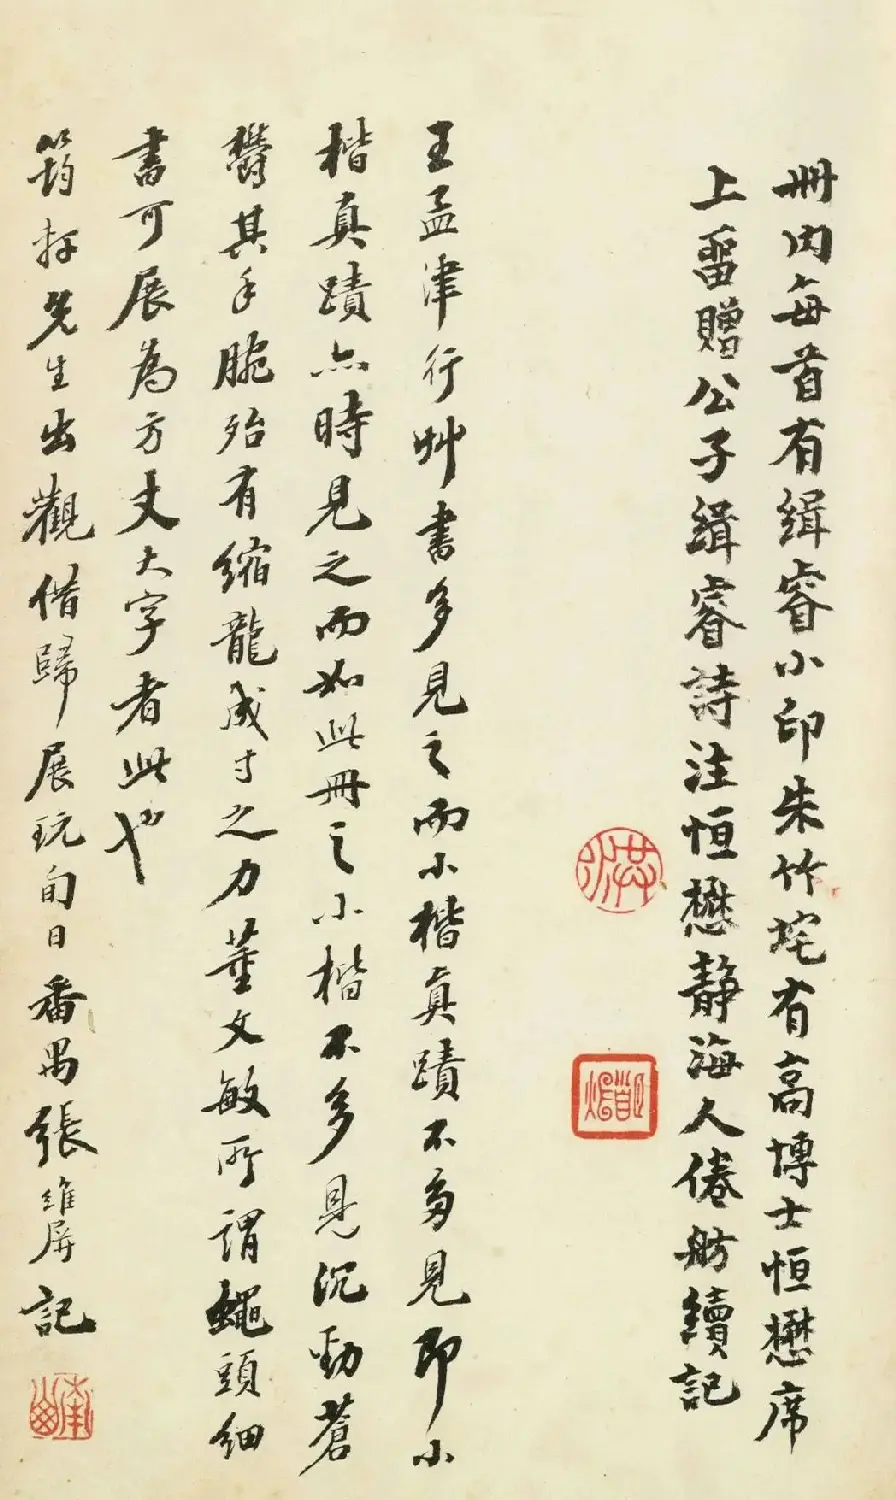 冊内每首有緝睿小印朱竹垞有高博士恒懋席
上留贈公子緝睿詩注恒懋静海人倦舫續記
王孟津行艸書多見之而小楷真蹟不多見即小
楷真蹟亦時見之而如此冊之小楷不多見沉勁蒼
鬱其手腕殆有縮龍成寸之力董文敏所謂蠅頭細
書可展為方丈大字者此也
筠 先生出觀借歸展玩旬日番禺張維屏記